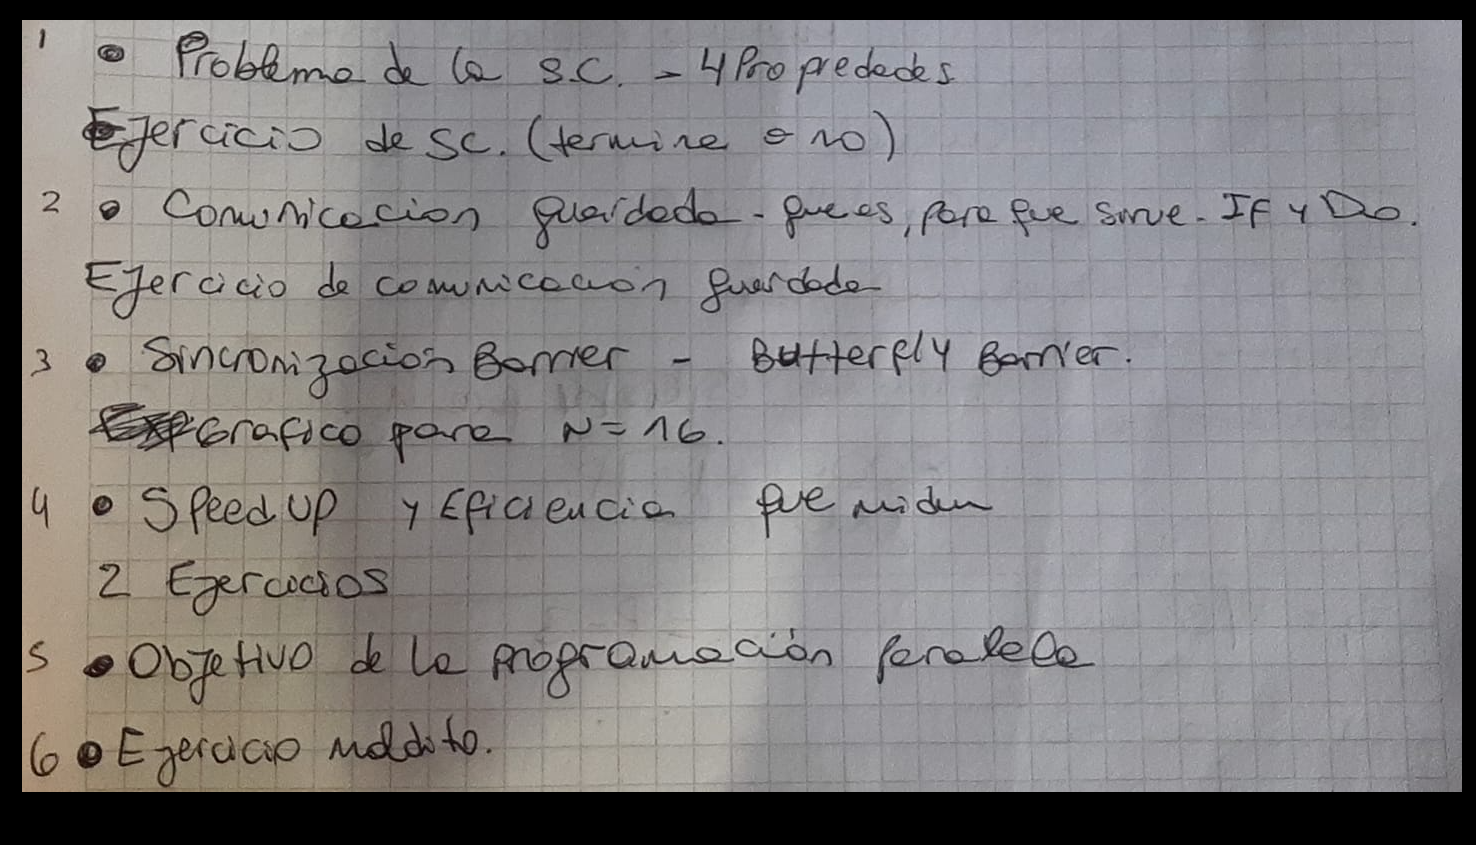 1 • Problema de la S.C. - 4 Propiedades
Ejercicio de SC. (termine o no)
2 • Comunicacion guardada - que es, para que sirve - IF y DO.
Ejercicio de comunicacion guardada
3 • Sincronizacion Barrier - Butterfly Barrier.
Grafico para N=16.
4 • SpeedUP y Eficiencia que miden
2 Ejercicios
5 • Objetivo de la programación paralela
6 • Ejercicio maldito.